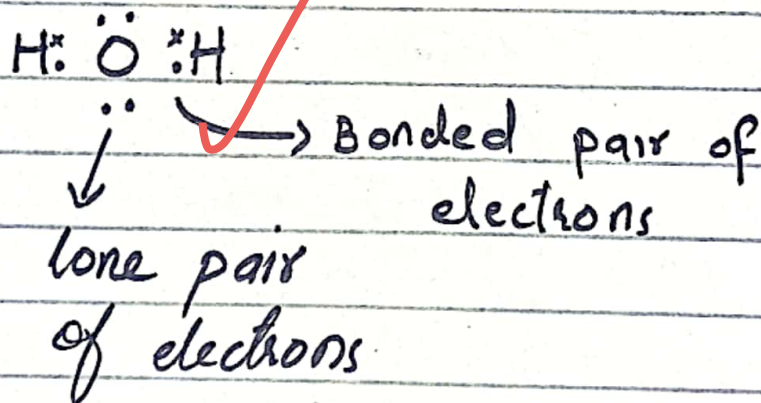 H ẋ. Ö ẋ. H
Bonded pair of
electrons
lone pair
of electrons.